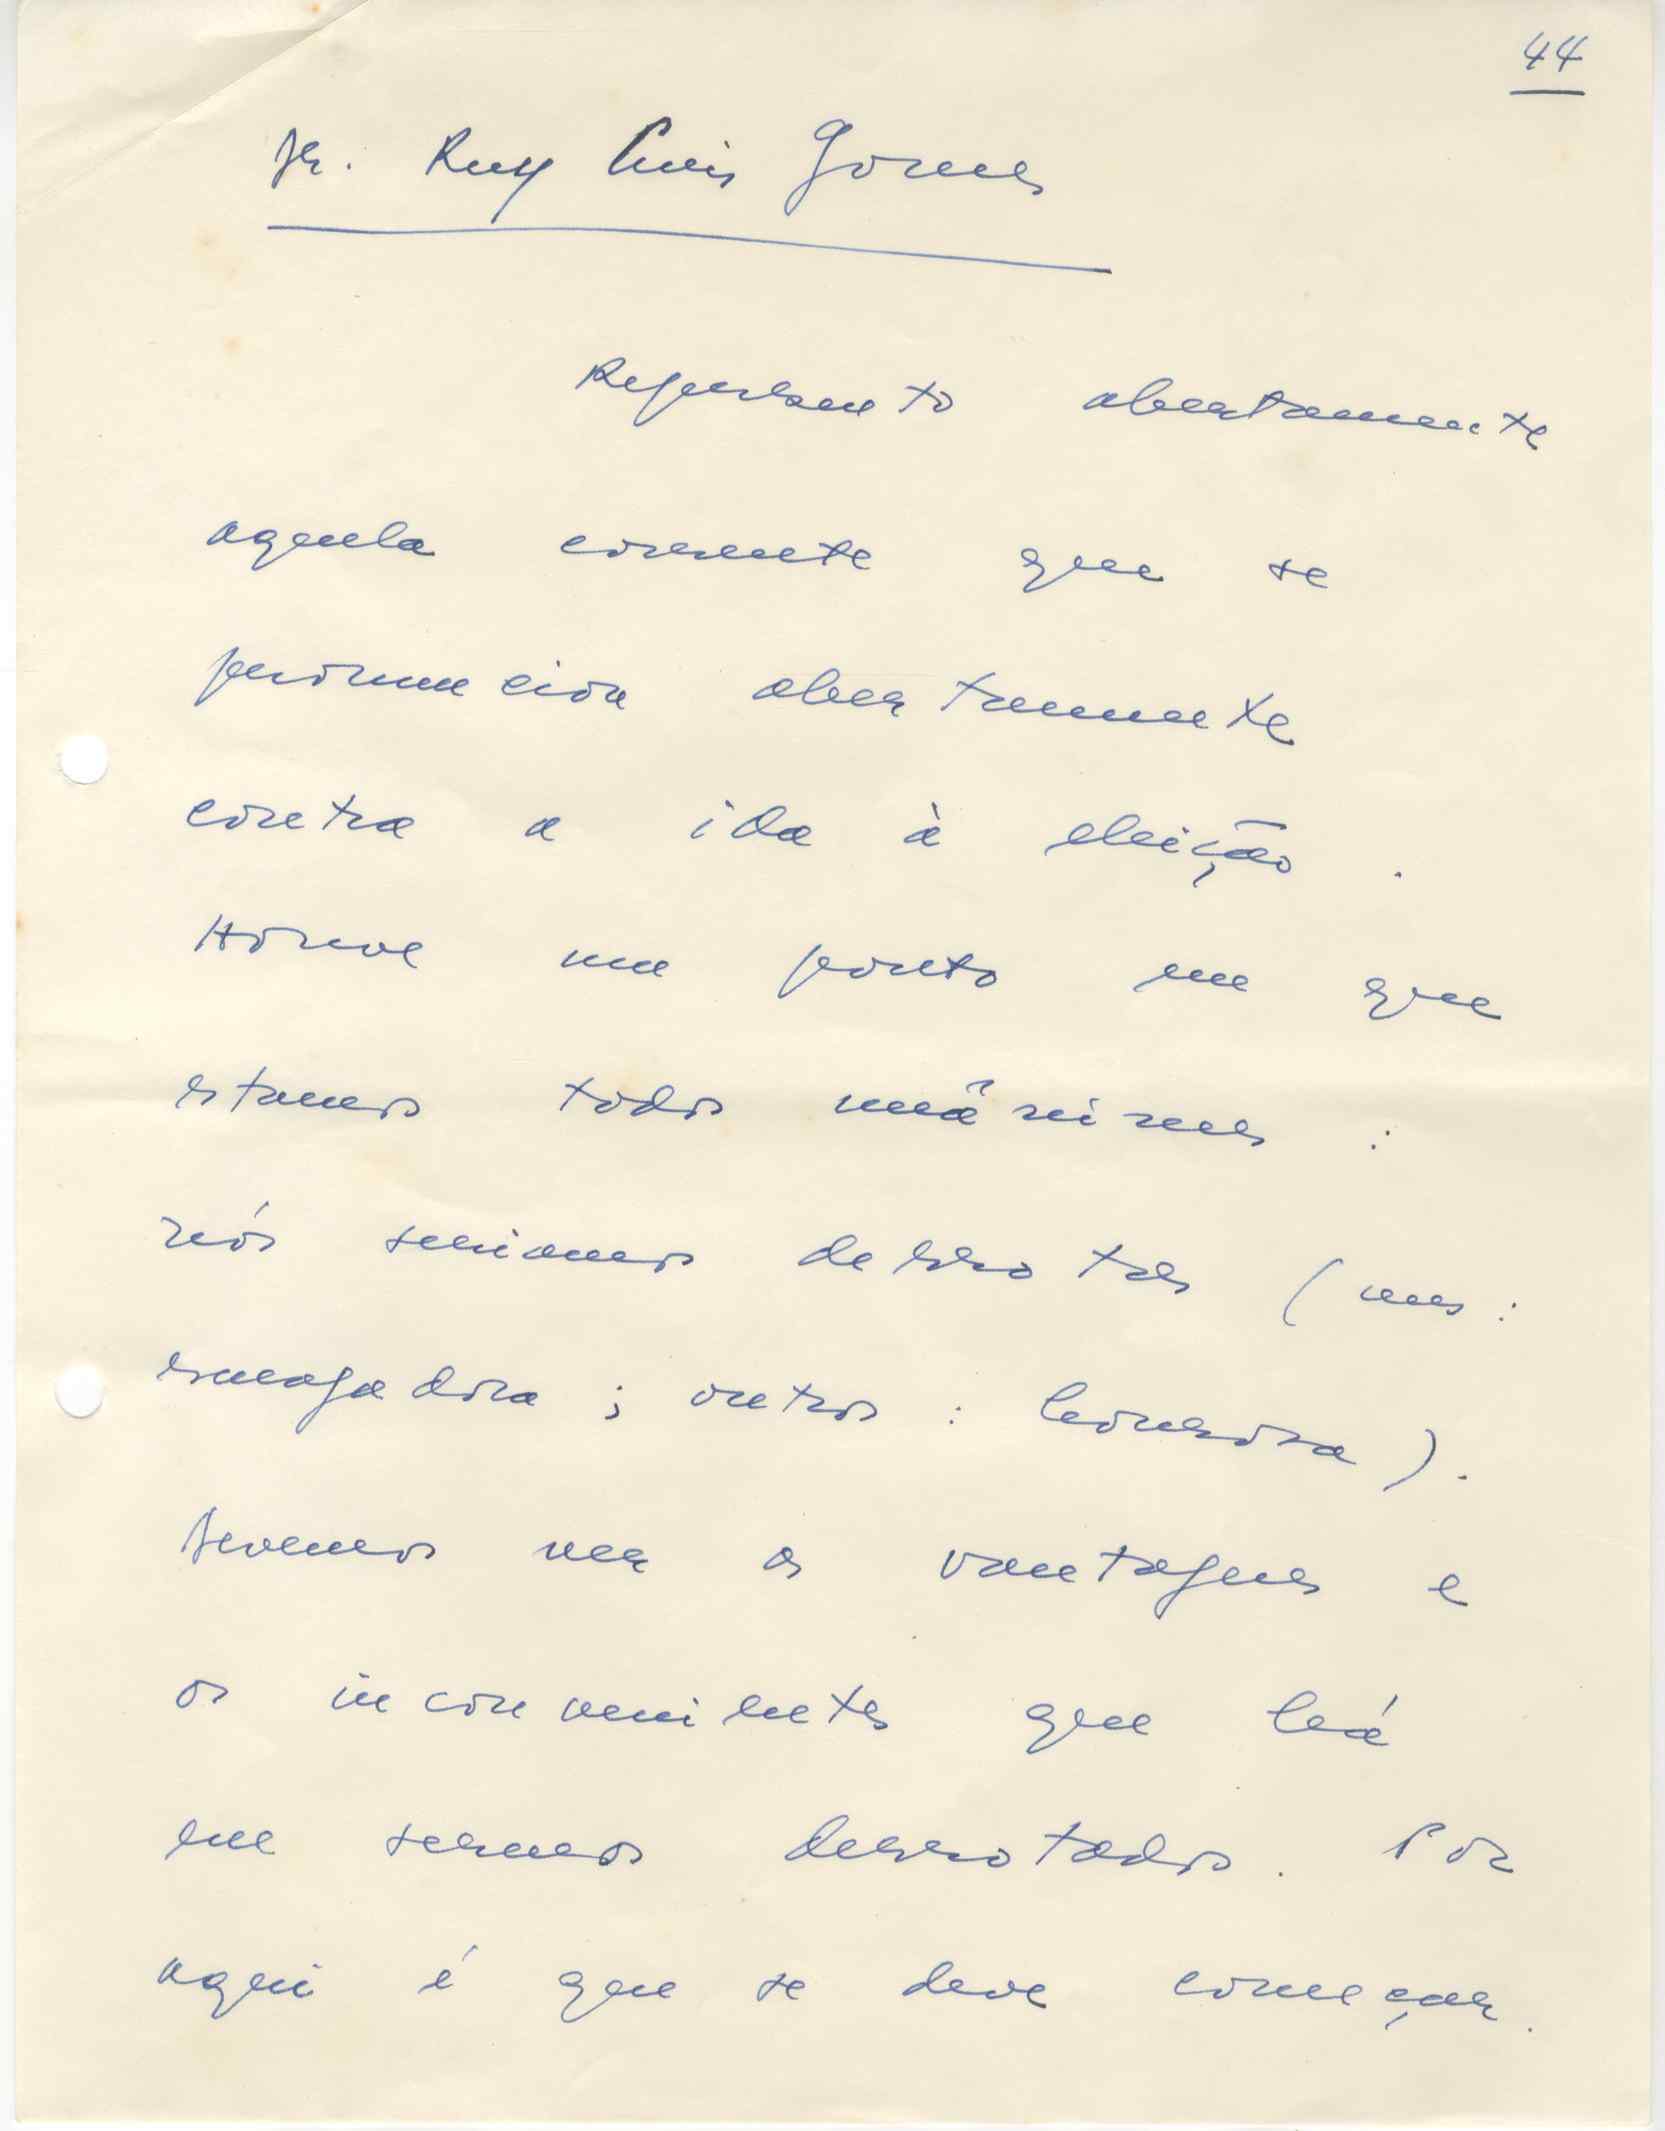 44
Dr. Ruy Luis Gomes
Represento abertamente
aquela corrente que se
pronuncia abertamente
contra a ida à eleição.
Houve um ponto em que
estamos todos unânimes:
nós seríamos derrotados (uns:
esmagadora; outros: honrosa).
Devemos ver as vantagens e
os inconvenientes que há
em sermos derrotados. Por
aqui é que se deve começar.